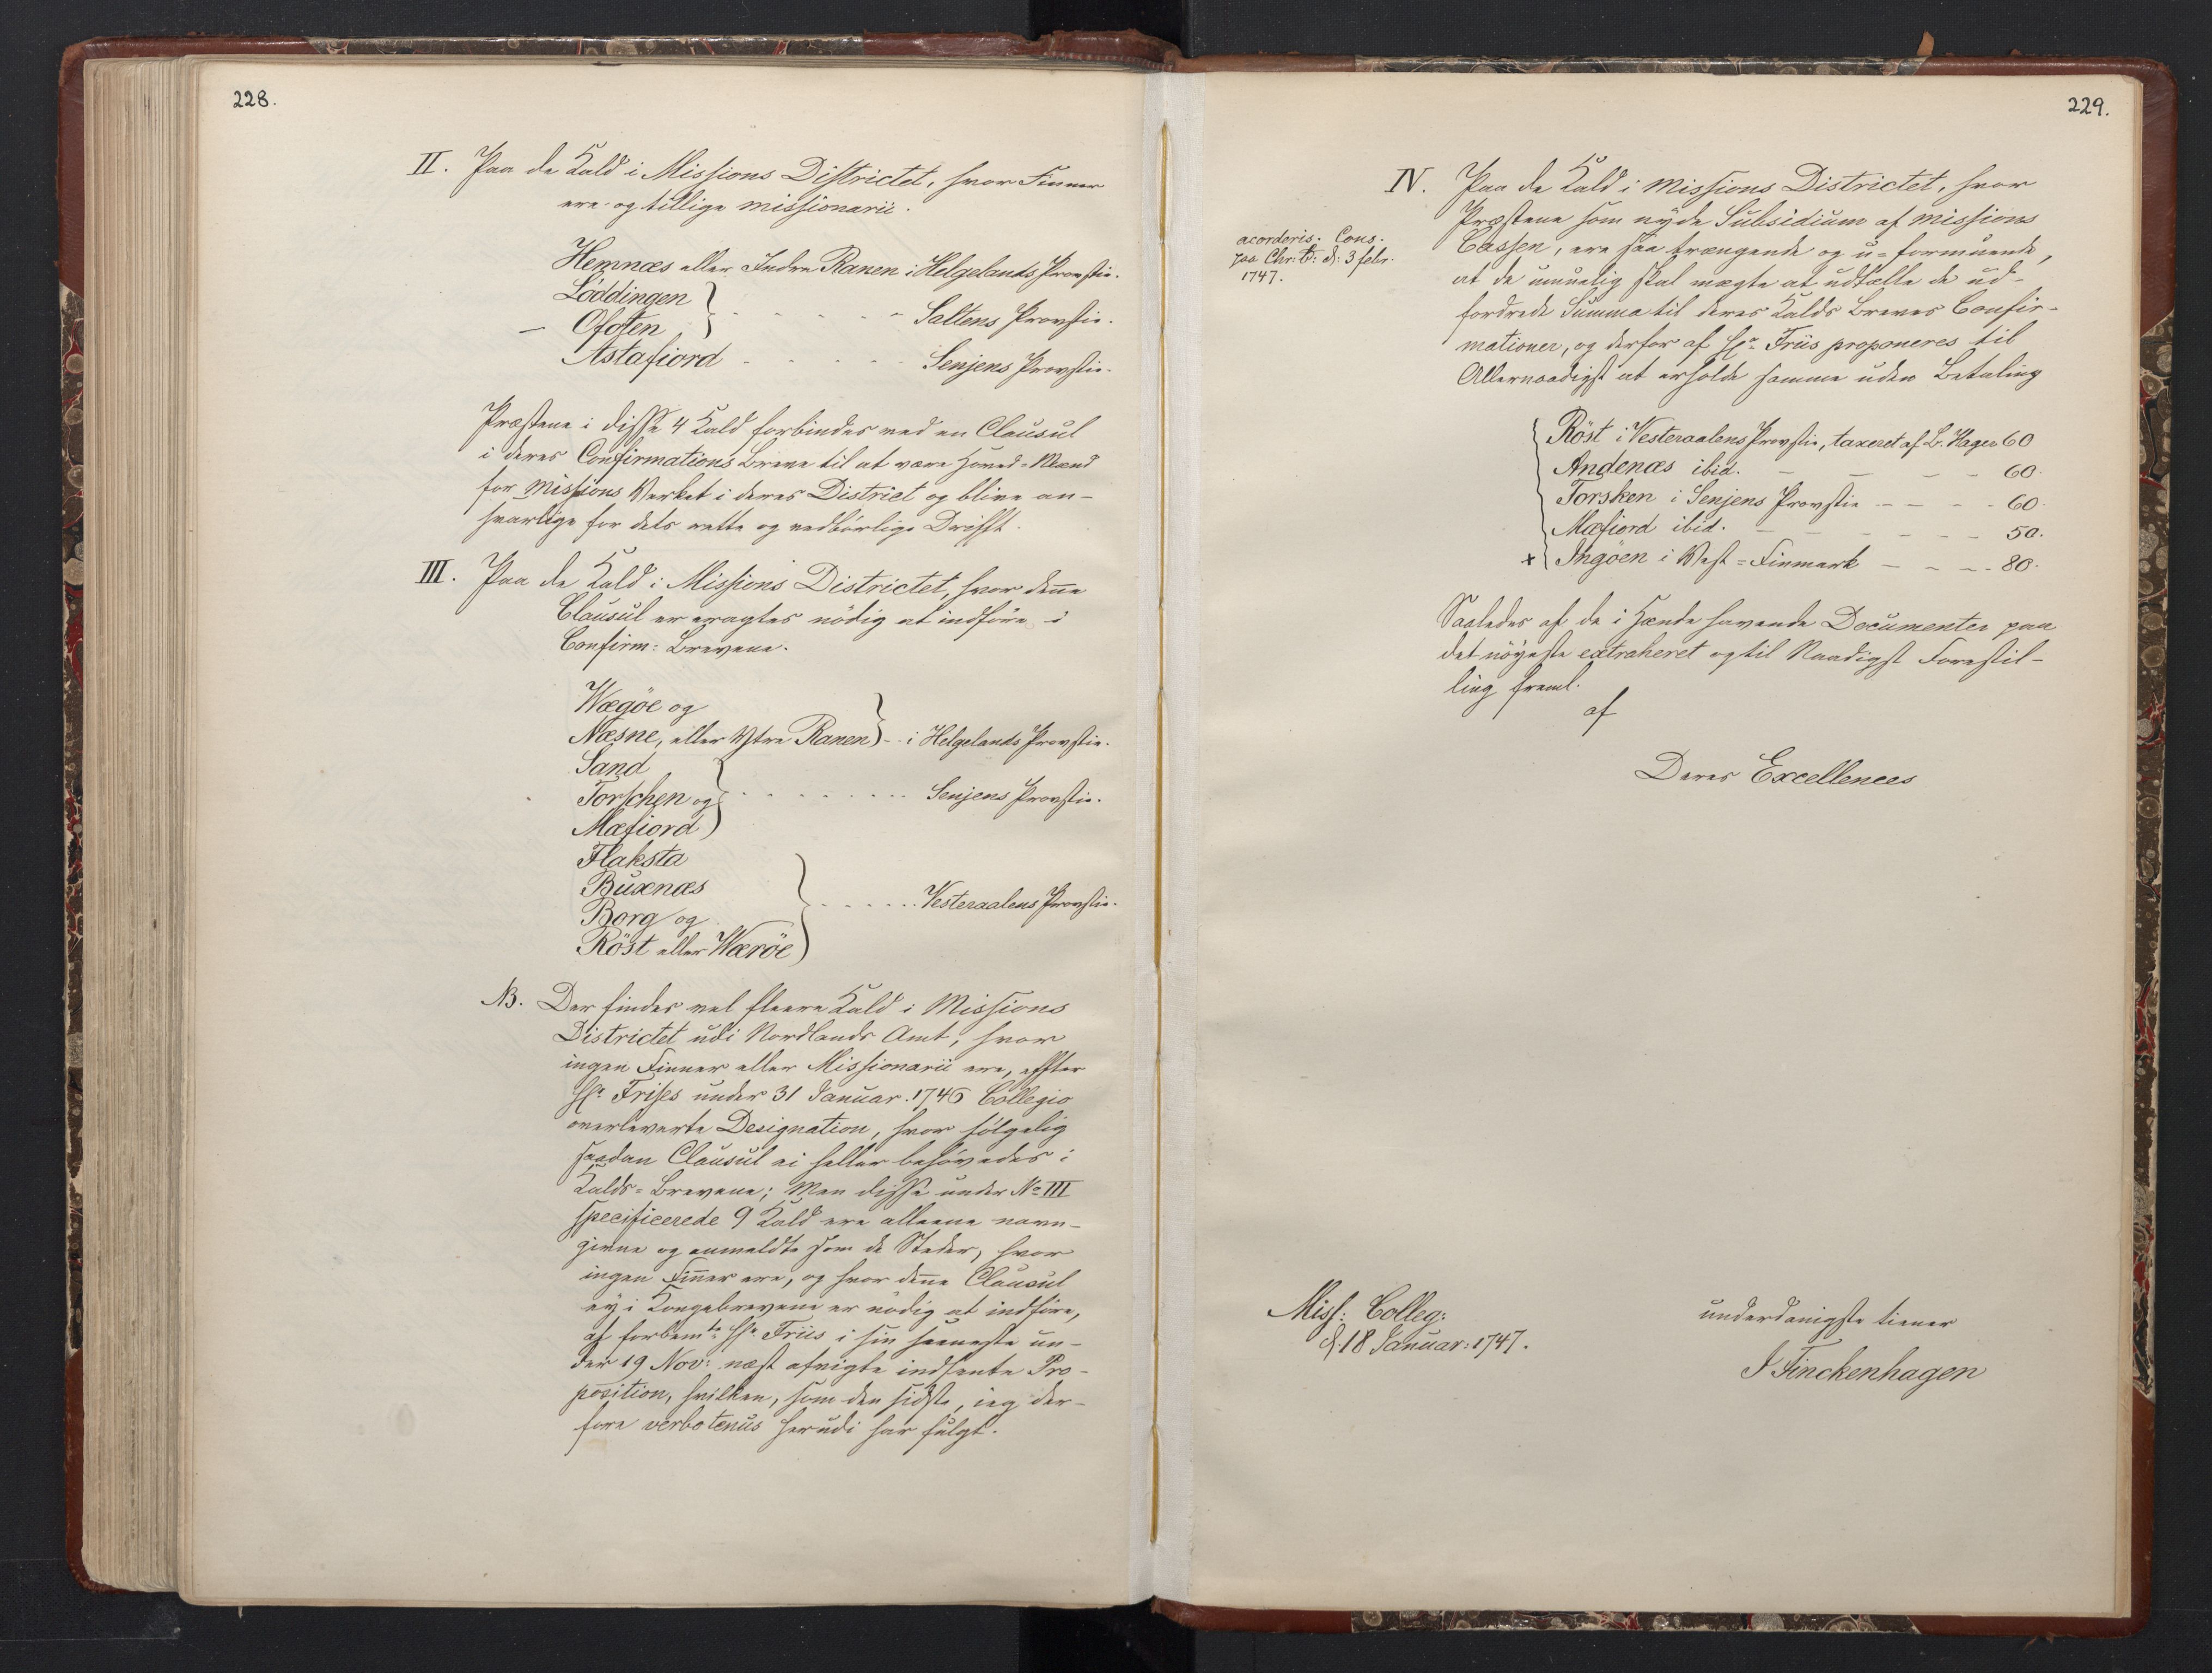 228.
II. Paa de Kald i Missions Districtet, hvor Finner
ere og tillige missionarii.
Hemnæs eller Indre Ranen i Helgelands Provstie.
Löddingen
- Ofoten } - - - - - - Saltens Provstie.
Astafiord - - - - - Senjens Provstie.
Præstene i disse 4 Kald forbindes ved en Clausul
i deres Confirmations Breve til at være Hoved-Mænd
for Missions Verket i deres District og blive an-
svarlige for dets rette og vedbörlige Drifft.
III. Paa de Kald i Missions Districtet, hvor denne
Clausul er eragtes nödig at indföre i
Confirm: Brevene.
Wægöe og
Næsne, eller Ytre Ranen } - - i Helgelands Provstie.
Sand
Torschen og } - - - - - - - - Senjens Provstie.
Mæfiord
Flaksta
Buxnæs
Borg og } - - - - - - Vesteraalens Provstie.
Röst eller Wæröe
NB. Der findes vel fleere Kald i Missions
Districtet udi Nordlands Amt, hvor
ingen Finner eller Missionarii ere, effter
Hr. Frises under 31 Januar. 1746 Collegio
overleverte Designation, hvor fölgelig
saadan Clausul ei heller behövedes i
Kalds-Brevene; Men disse under No III
specificerede 9 Kald ere alleene navn-
givne og anmeldte som de Steder, hvor
ingen Finner ere, og hvor denne Clausul
ey i Kongebrevene er nödig at indföre,
af forbemte Hr. Friis i sin seeneste un-
der 19 Nov: næst afvigte indsente Pro-
position, hvilken, som den sidste, ieg der-
fore verbotenus herudi har fulgt.
229.
IV. Paa de Kald i Missions Districtet, hvor
Præstene som nyde Subsidium af missions
Cassen, ere saa trængende og u-formuende,
at de umuelig skal magte at udtælle de ud-
fordrede Summa til deres Kalds Breves Confir-
mationer, og derfor af Hr. Friis proponeres til
Allernaadigst at erholde samme uden Betaling
acorderis. Cons.
paa Chr: B: d: 3 febr.
1747.
Röst i Vesteraalens Provstie, taxeret af L. Hagen 60
Andenæs ibid. - - - - 60.
Torsken i Senjens Provstie - - - - 60.
Mæfiord ibid. - - - - - - 50.
+ Ingöen i Vest-Finmark - - - - 80.
Saaledes af de i Hænde havende Documenter paa
det nöyeste extraheret og til Naadigst Forestil-
ling freml.
af
Deres Excellences
Miss: Colleg:
d. 18 Januar: 1747.
underdanigste tiener
J Finckenhagen